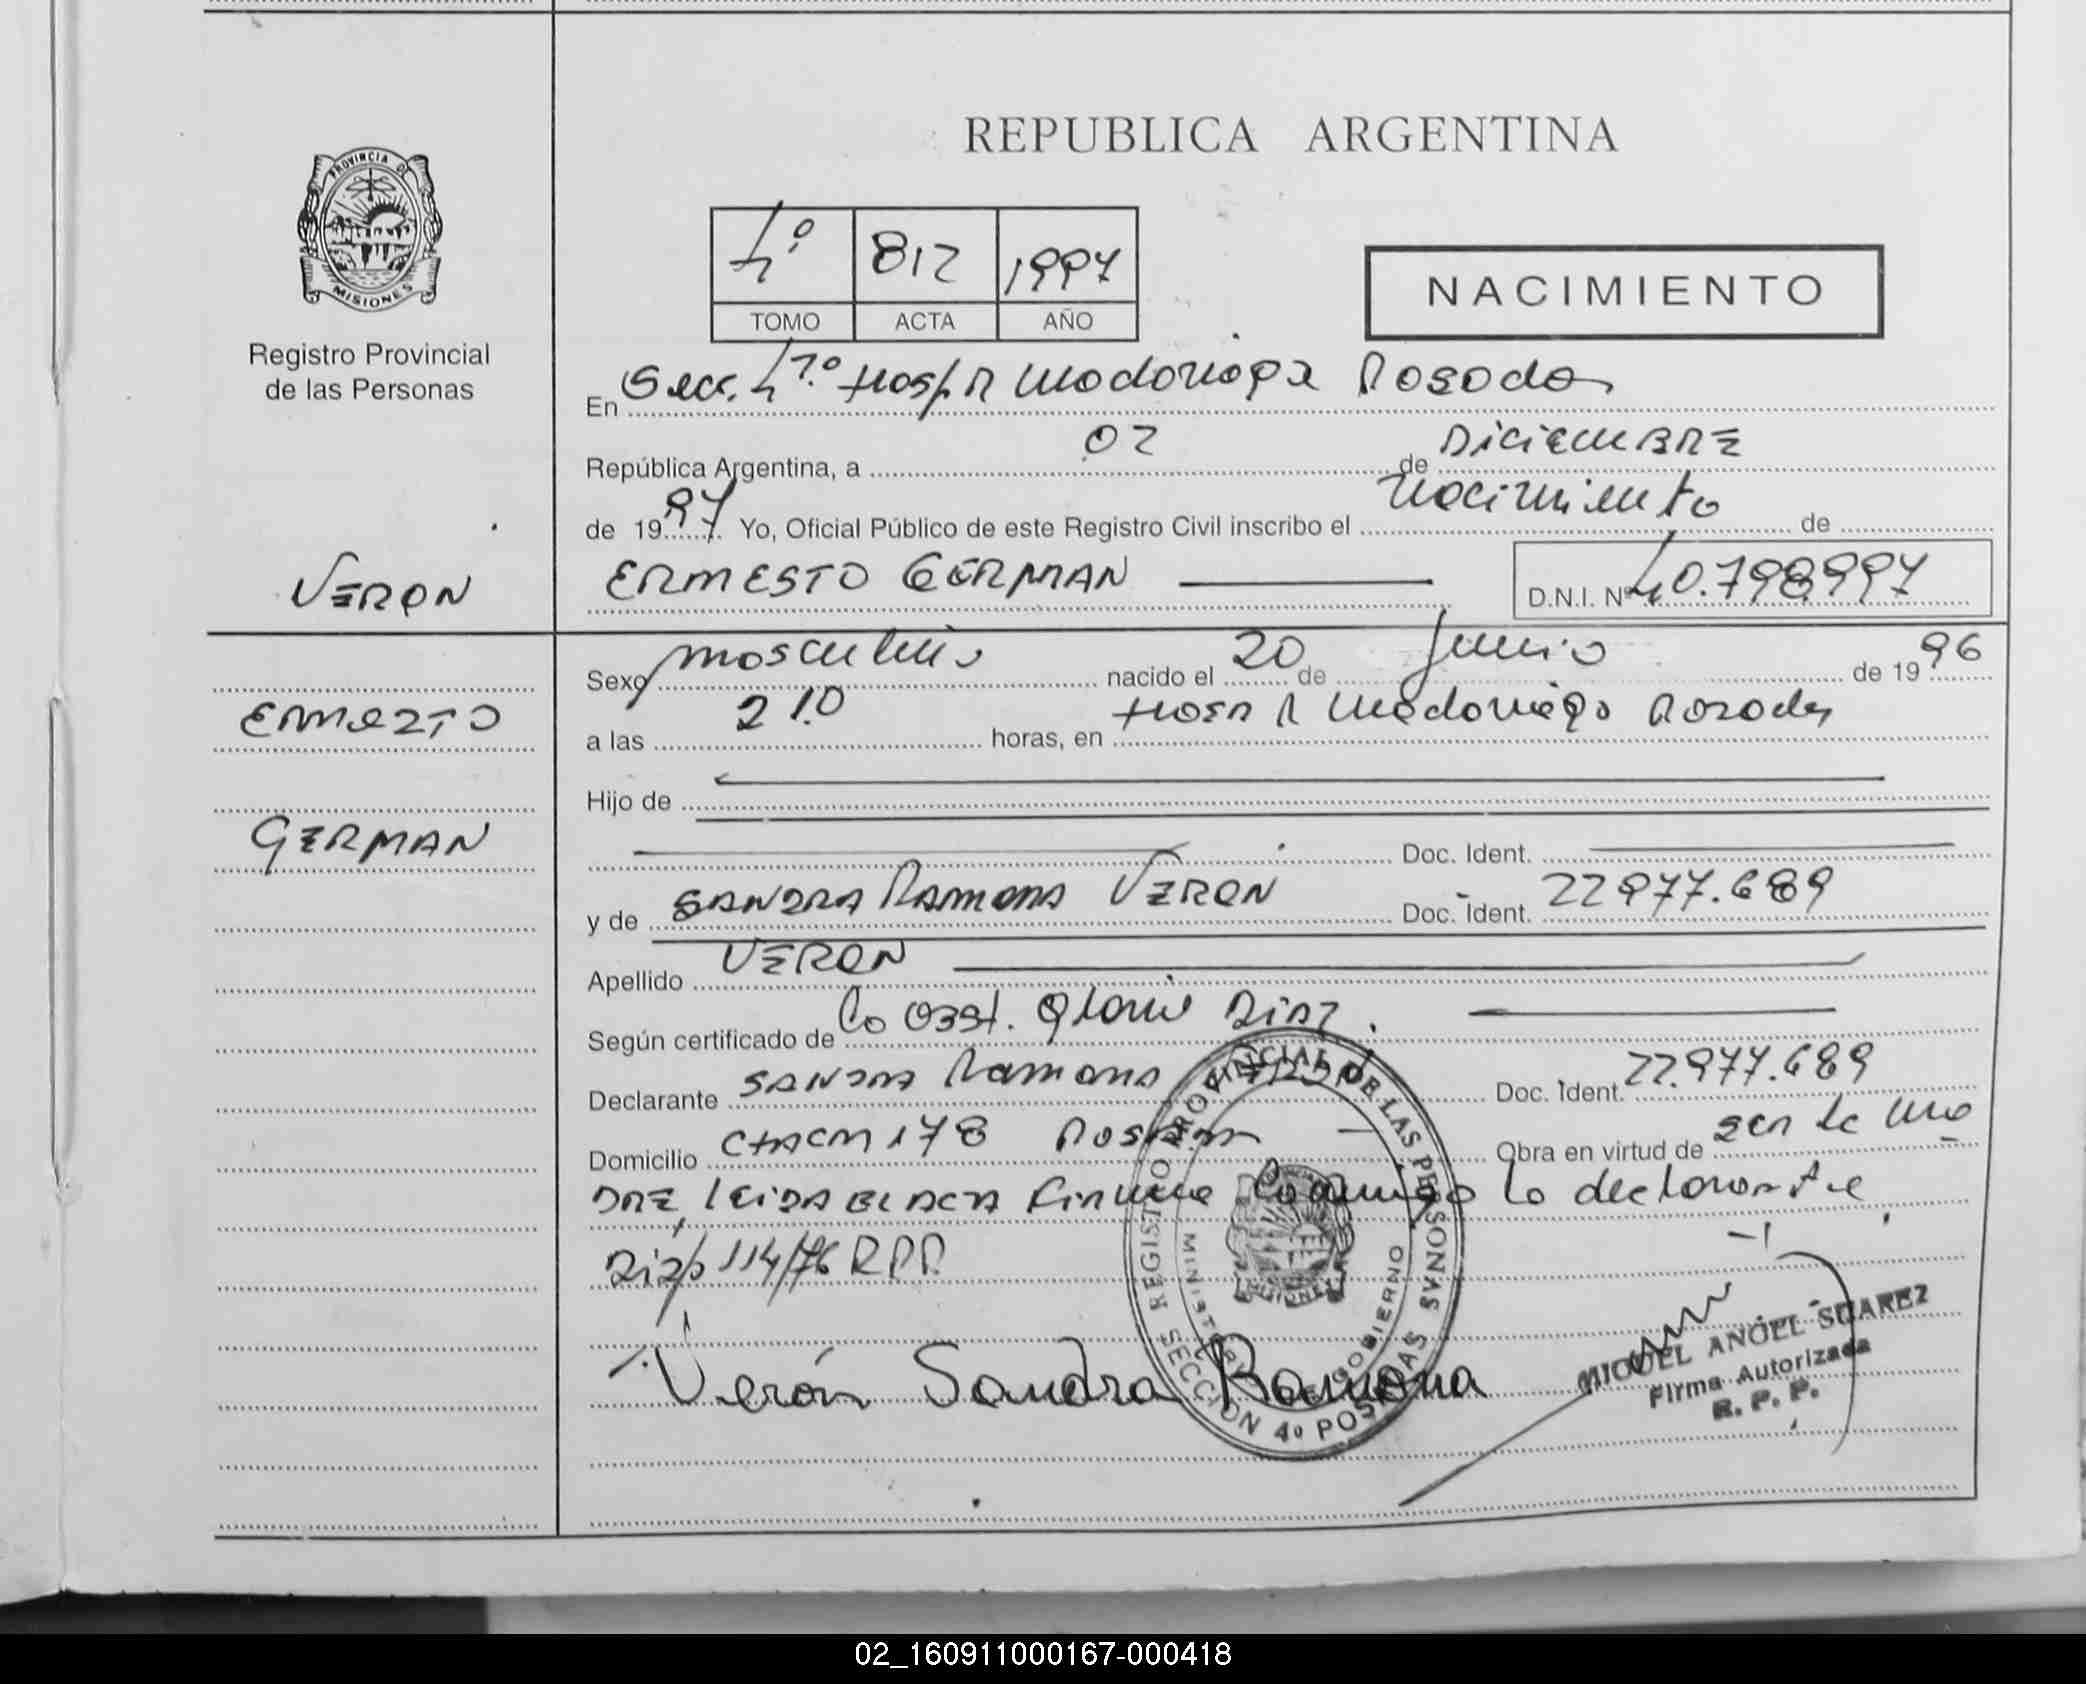 REPUBLICA ARGENTINA
PROVINCIA DE
MISIONES
Registro Provincial
de las Personas
4º 812 1997
TOMO ACTA AÑO
NACIMIENTO
En Secc. 4º Hosp R Madariaga Posadas
República Argentina, a 02 de DICIEMBRE
de 1997 Yo, Oficial Público de este Registro Civil inscribo el nacimiento de
VERON
ERNESTO GERMAN D.N.I. Nº 40.798997
Sexo masculino nacido el 20 de Junio de 1996
ERNESTO
a las 210 horas, en Hosp R Madariaga Posadas
Hijo de
GERMAN
Doc. Ident.
y de SANDRA RAMONA VERON Doc. Ident. 22977.689
Apellido VERON
Según certificado de La Obst. Gloria DIAZ.
Declarante SANDRA Ramona VERON Doc. Ident. 22.977.689
Domicilio CHACRA 178 Posadas Obra en virtud de ser la ma
DRE LEIDA EL ACTA Firma Conmigo la declarante
Disp 114/76 R.P.P.
REGISTRO PROVINCIAL DE LAS PERSONAS
MINISTERIO DE GOBIERNO
MISIONES
SECCIÓN 4º POSADAS
Verón Sandra Ramona
MIGUEL ANGEL SUAREZ
Firma Autorizada
R. P. P.
02_160911000167-000418